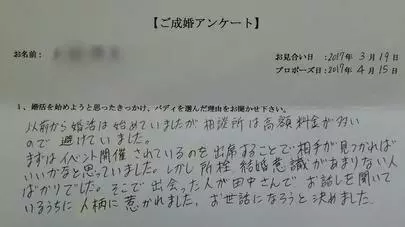 【ご成婚アンケート】
お名前:
お見合い日:2017年3月19日
プロポーズ日:2017年4月15日
1、婚活を始めようと思ったきっかけ、バディを選んだ理由をお聞かせ下さい。
以前から婚活は始めていましたが相談所は高額料金が多い
ので避けていました。
まずはイベント開催されているのを出席することで相手が見つかれば
いいかなと思っていました。しかし所栓結婚意識があまりない人
ばかりでした。そこで出会った人が田中さんでお話しを聞いて
いるうちに人柄に惹かれました。お世話になろうと決めました。